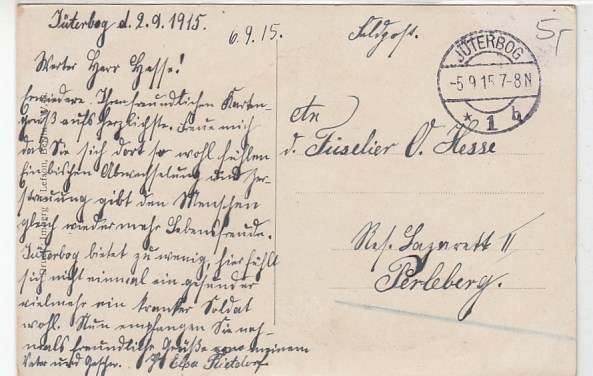 Jüterbog d. 2.9.1915.
6.9.15.
Feldpost.
5,-
JÜTERBOG
-5.9.15.7-8N
* 1 b
Werter Herr Hesse!
Erwiedere Ihren freundlichen Karten-
gruß aufs herzlichste. Freue mich
daß Sie sich dort so wohl fühlen
Ein bischen Abwechselung und Zer-
streuung gibt den Menschen
gleich wieder mehr Lebensfreude.
Jüterbog bietet zu wenig, hier fühlt
sich nicht einmal ein gesunder
vielmehr ein kranker Soldat
wohl. Nun empfangen Sie noch-
mals freundliche Grüße von meinem
Vater und Geschw. Elsa
An
d. Füselier O. Hesse
Res. Lazarett II
Perleberg.